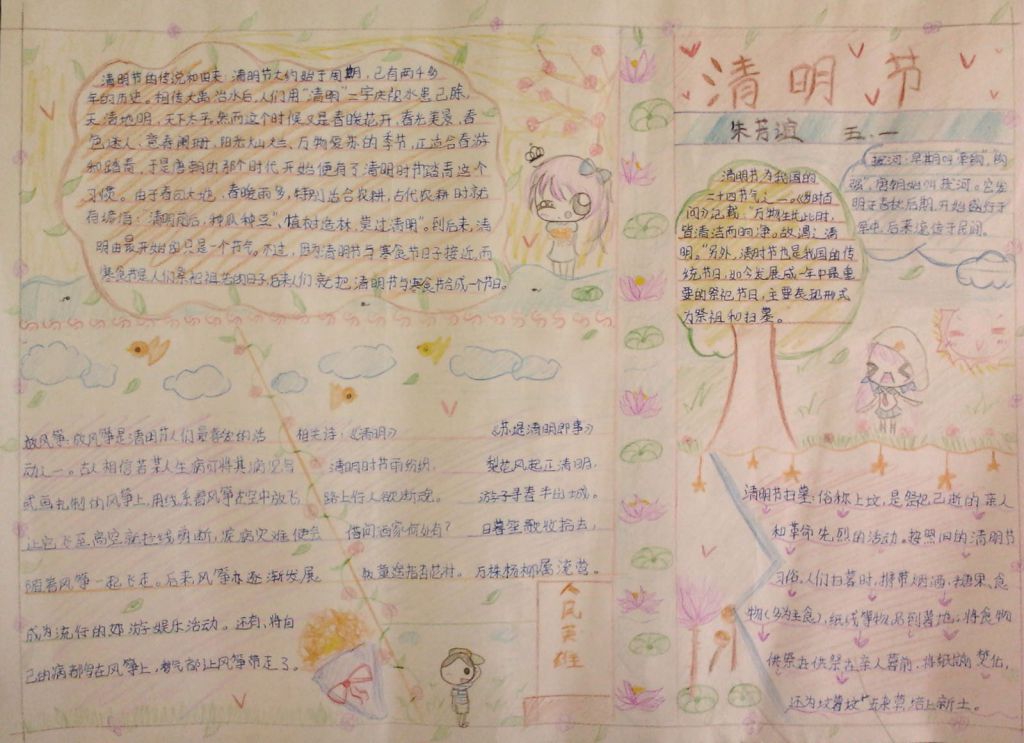 清明节
朱芳谊 五.一
清明节的传说和由来:清明节大约始于周期,已有两千多
年的历史。相传大禹治水后,人们用"清明"二字庆阻水患已除,
天清地明,天下太平。然而这个时候又是春暖花开,春光美景,春
色迷人、意春阑珊,阳光大山大兰、万物复苏的季节,正适合春游
和踏青,于是唐朝的那个时代开始便有了清明时节踏青这个
习惯。由于春回大地,春暖雨多,特别适合农耕,古代农耕时就
有谚语:"清明前后,种瓜种豆"、"植树造林,莫过清明"。到后来,清
明由最开始的只是一个节气。不过,因为清明节与寒食节日子接近,而
寒食节是人们祭祀祖先的日子后来人们就把清明节与寒食节合成一个节日。
清明节为我国的
二十四节气之一。《岁时百
问》记载:"万物生长此时,
皆清洁而明净。故谓之清
明。"另外,清时节也是我国的传
统节日,如今发展成一年中最重
要的祭祀节日,主要表现形式
为祭祖和扫墓。
拔河:早期叫"牵钩","钩
强",唐朝始叫拔河。它发
明于春秋后期,开始盛行于
军中,后来流传于民间。
放风筝:放风筝是清明节人们最喜爱的活
动之一。古人相信若某人生病可将其病况写
或画扎制的风筝上,用线系着风筝在空中放飞
让它飞至高空就扯线剪断,疾病灾难便会
随着风筝一起飞走。后来风筝亦逐渐发展
成为流行的郊游娱乐活动。还有,将自
己的病都写在风筝上,晦气都让风筝带走了。
相关诗:《清明》
清明时节雨纷纷,
路上行人欲断魂。
借问酒家何处有?
牧童遥指杏花村。
《苏堤清明即事》
梨花风起正清明,
游子寻春半出城。
日暮笙歌收拾去,
万株杨柳属流莺。
人民英雄
清明节扫墓:俗称上坟,是祭祀已逝的亲人
和革命先烈的活动。按照旧的清明节
习俗,人们扫墓时,携带烟酒、糖果、食
物(多为主食),纸钱等物品到墓地,将食物
供祭在供祭在亲人墓前,将纸钱焚化,